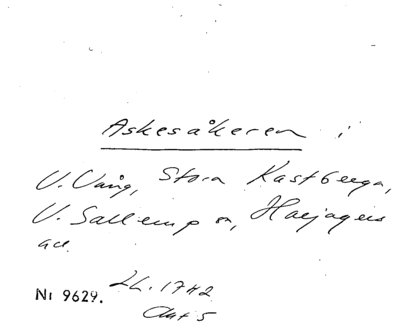 Askesåkeren i
V. Vång, Stora Kastberga,
V. Sallerup sn, Harjagers
hd.
Nr 9629. LL. 1742
Akt 5